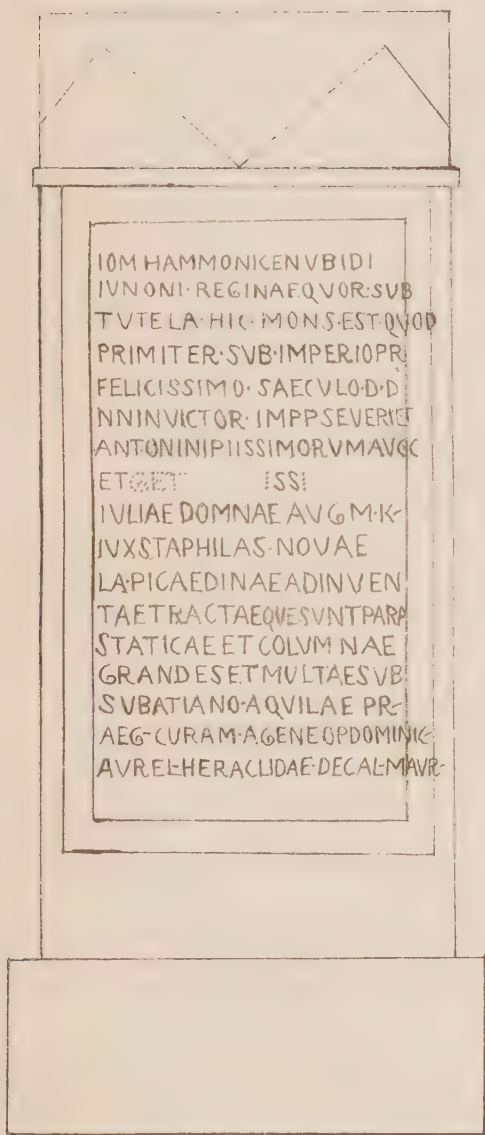 IOM HAMMONI CENVBIDI
IVNONI·REGINAE QVOR·SVB
TVTELA·HIC·MONS·EST·QVOD
PRIMITER·SVB·IMPERIO PR
FELICISSIMO·SAECVLO·D·D
NN INVICTOR·IMPP SEVERI ET
ANTONINI PIISSIMORVM AVGG
ET GET ISSI
IVLIAE DOMNAE AVG M·K
IVXSTA PHILAS·NOVAE
LAPICAEDINAE ADINVEN
TAE TRACTAEQVE SVNT PARA
STATICAE ET COLVMNAE
GRANDES ET MVLTAE SVB
SVBATIANO·AQVILAE PR
AEG CVRAM·AGENE OP DOMINIC
AVREL HERACLIDAE·DEC AL MAVR